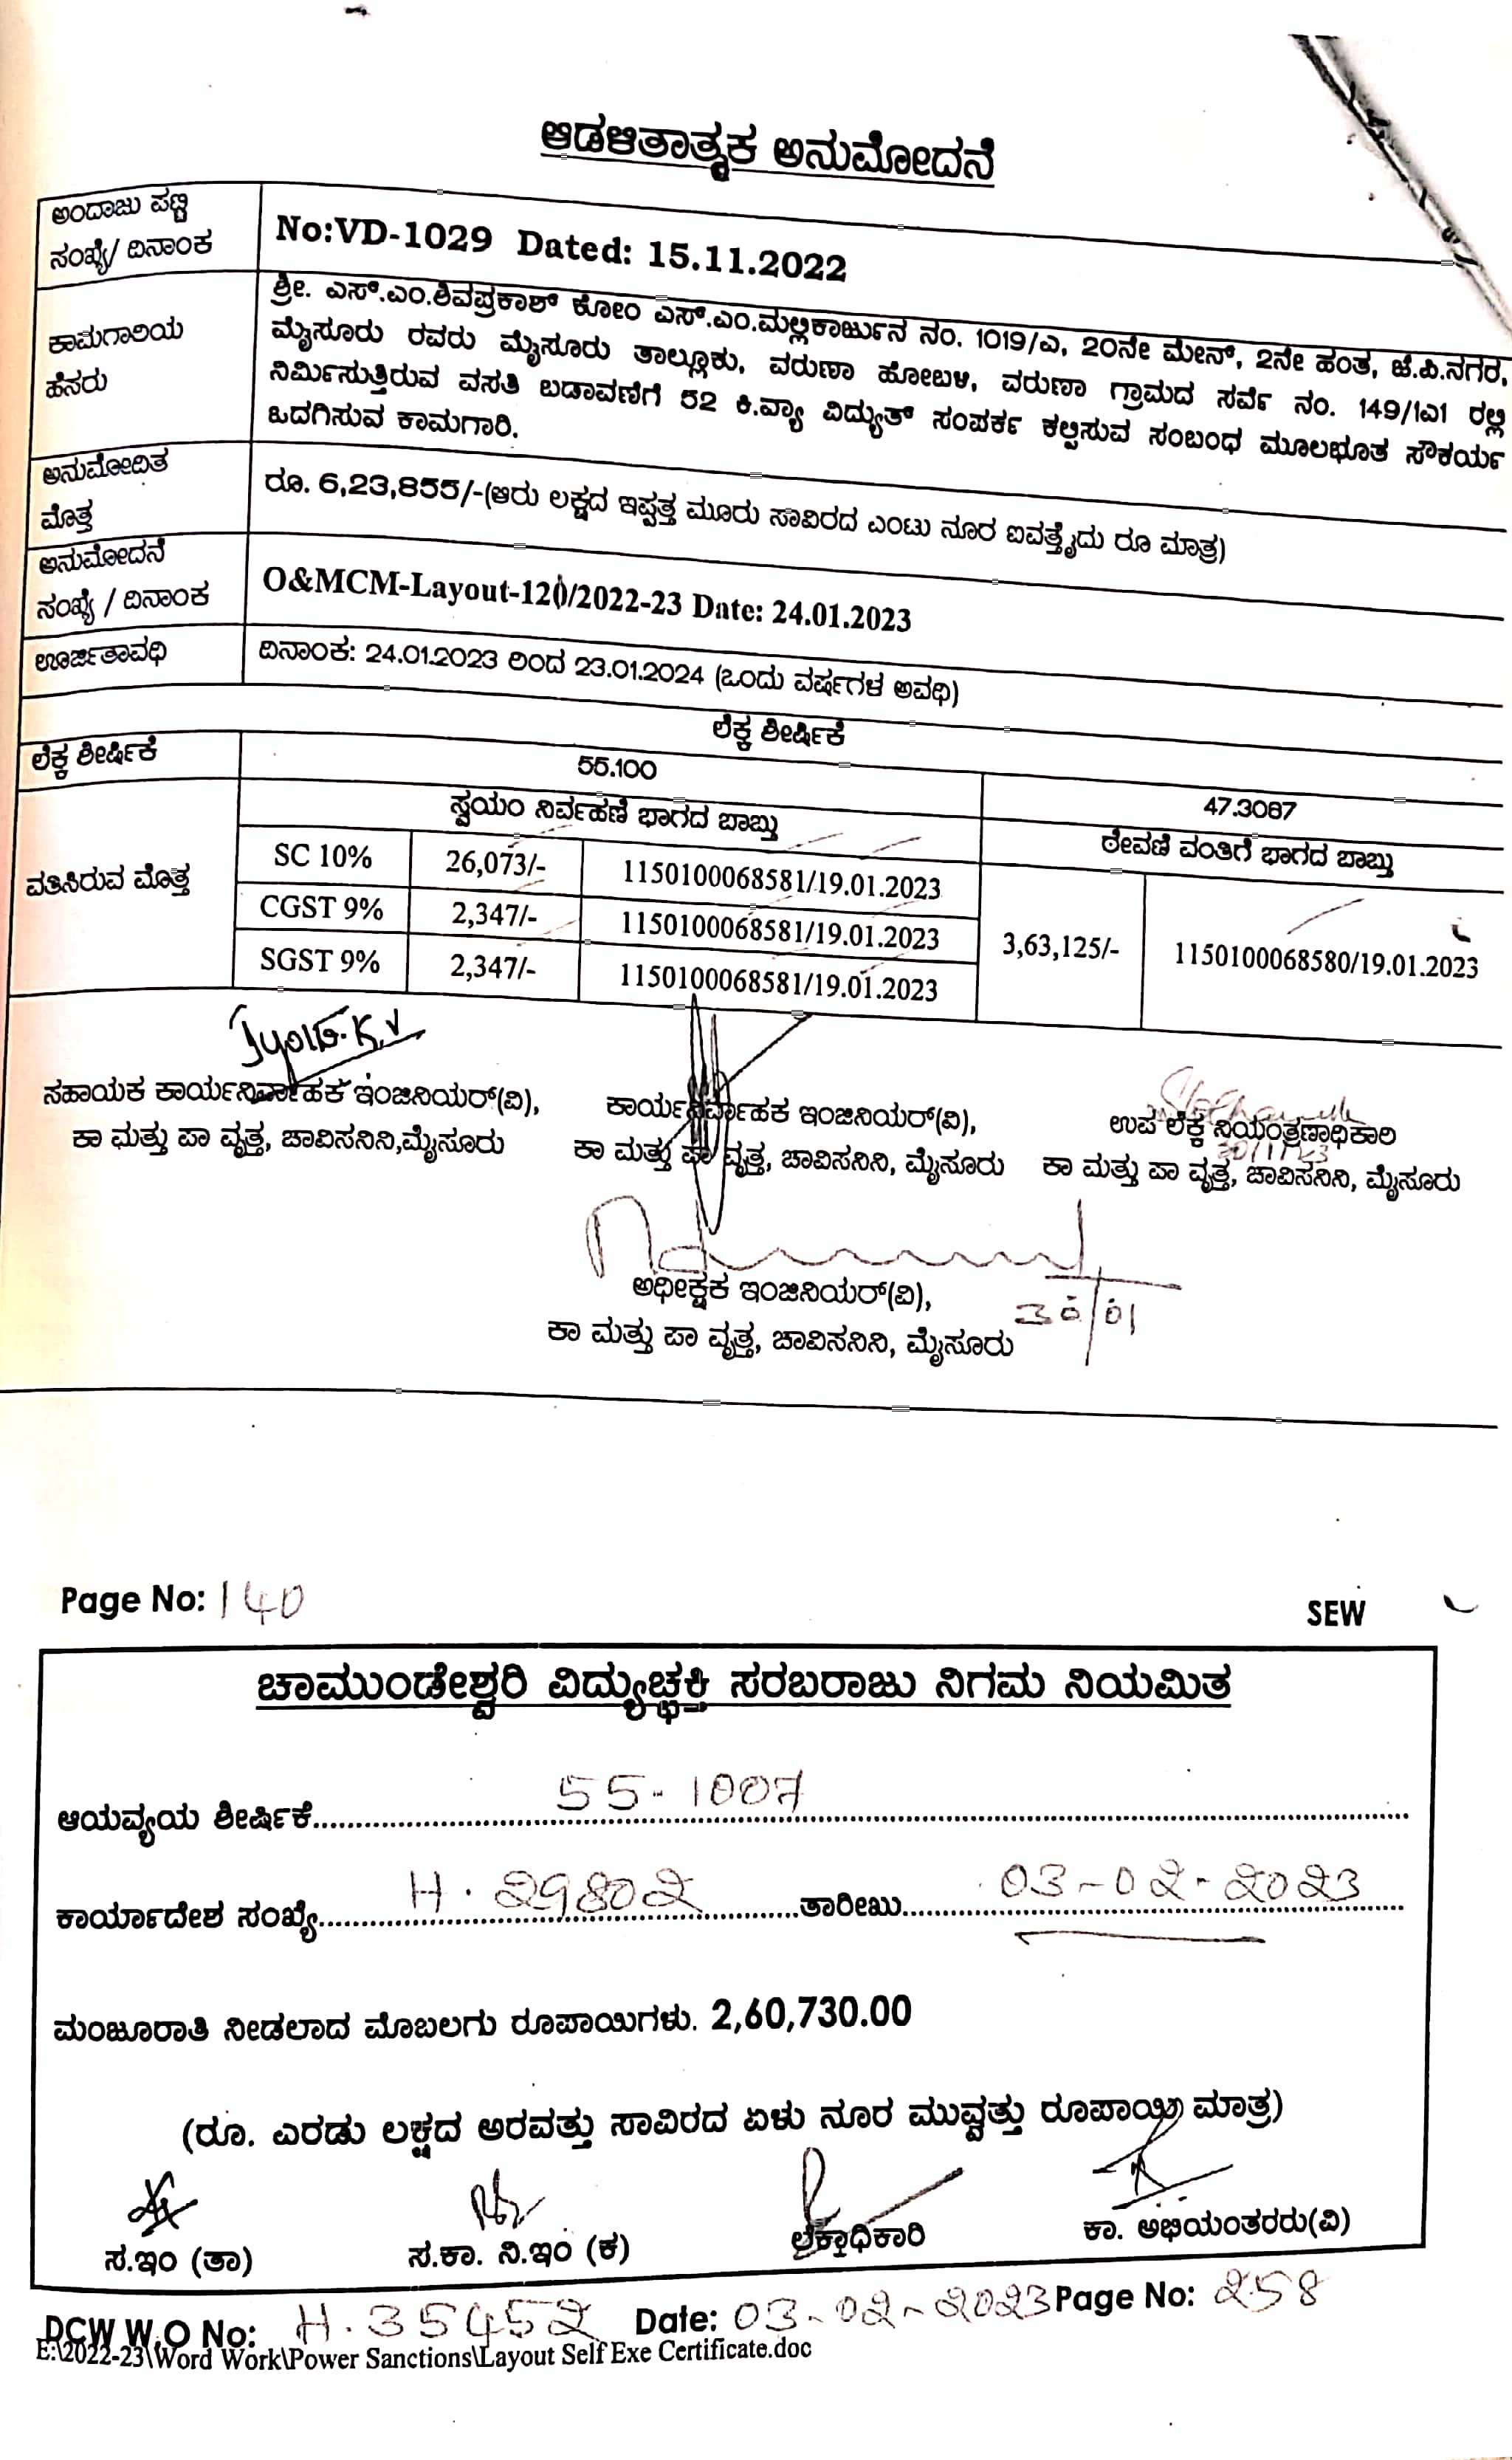 ಆಡಳಿತಾತ್ಮಕ ಅನುಮೋದನೆ
ಅಂದಾಜು ಪಟ್ಟಿ
ಸಂಖ್ಯೆ/ ದಿನಾಂಕ
No:VD-1029 Dated: 15.11.2022
ಕಾಮಗಾರಿಯ
ಹೆಸರು
ಶ್ರೀ. ಎಸ್.ಎಂ.ಶಿವಪ್ರಕಾಶ್ ಕೋಂ ಎಸ್.ಎಂ.ಮಲ್ಲಿಕಾರ್ಜುನ ನಂ. 1019/ಎ, 20ನೇ ಮೇನ್, 2ನೇ ಹಂತ, ಜೆ.ಪಿ.ನಗರ,
ಮೈಸೂರು ರವರು ಮೈಸೂರು ತಾಲ್ಲೂಕು, ವರುಣಾ ಹೋಬಳಿ, ವರುಣಾ ಗ್ರಾಮದ ಸರ್ವೆ ನಂ. 149/1ಎ1 ರಲ್ಲಿ
ನಿರ್ಮಿಸುತ್ತಿರುವ ವಸತಿ ಬಡಾವಣೆಗೆ 52 ಕಿ.ವ್ಯಾ ವಿದ್ಯುತ್ ಸಂಪರ್ಕ ಕಲ್ಪಿಸುವ ಸಂಬಂಧ ಮೂಲಭೂತ ಸೌಕರ್ಯ
ಒದಗಿಸುವ ಕಾಮಗಾರಿ.
ಅನುಮೋದಿತ
ಮೊತ್ತ
ರೂ. 6,23,855/-(ಆರು ಲಕ್ಷದ ಇಪ್ಪತ್ತ ಮೂರು ಸಾವಿರದ ಎಂಟು ನೂರ ಐವತ್ತೈದು ರೂ ಮಾತ್ರ)
ಅನುಮೋದನೆ
ಸಂಖ್ಯೆ / ದಿನಾಂಕ
O&MCM-Layout-120/2022-23 Date: 24.01.2023
ಊರ್ಜಿತಾವಧಿ
ದಿನಾಂಕ: 24.01.2023 ರಿಂದ 23.01.2024 (ಒಂದು ವರ್ಷಗಳ ಅವಧಿ)
ಲೆಕ್ಕ ಶೀರ್ಷಿಕೆ
ಲೆಕ್ಕ ಶೀರ್ಷಿಕೆ
55.100
47.3087
ಸ್ವಯಂ ನಿರ್ವಹಣೆ ಭಾಗದ ಬಾಬ್ತು
ಠೇವಣಿ ವಂತಿಗೆ ಭಾಗದ ಬಾಬ್ತು
ವತಿಸಿರುವ ಮೊತ್ತ
SC 10% 26,073/- 1150100068581/19.01.2023
CGST 9% 2,347/- 1150100068581/19.01.2023
SGST 9% 2,347/- 1150100068581/19.01.2023
3,63,125/- 1150100068580/19.01.2023
Jyothi.K.V
ಸಹಾಯಕ ಕಾರ್ಯನಿರ್ವಾಹಕ ಇಂಜಿನಿಯರ್(ವಿ),
ಕಾ ಮತ್ತು ಪಾ ವೃತ್ತ, ಚಾವಿಸನಿನಿ,ಮೈಸೂರು
ಕಾರ್ಯನಿರ್ವಾಹಕ ಇಂಜಿನಿಯರ್(ವಿ),
ಕಾ ಮತ್ತು ಪಾ ವೃತ್ತ, ಚಾವಿಸನಿನಿ, ಮೈಸೂರು
ಉಪ ಲೆಕ್ಕ ನಿಯಂತ್ರಣಾಧಿಕಾರಿ
30/1/23
ಕಾ ಮತ್ತು ಪಾ ವೃತ್ತ, ಚಾವಿಸನಿನಿ, ಮೈಸೂರು
ಅಧೀಕ್ಷಕ ಇಂಜಿನಿಯರ್(ವಿ),
30/01
ಕಾ ಮತ್ತು ಪಾ ವೃತ್ತ, ಚಾವಿಸನಿನಿ, ಮೈಸೂರು
Page No: 140
SEW
ಚಾಮುಂಡೇಶ್ವರಿ ವಿದ್ಯುಚ್ಛಕ್ತಿ ಸರಬರಾಜು ನಿಗಮ ನಿಯಮಿತ
ಆಯವ್ಯಯ ಶೀರ್ಷಿಕೆ..........55-1007..........
ಕಾರ್ಯಾದೇಶ ಸಂಖ್ಯೆ..........H.29802..........ತಾರೀಖು..........03-02-2023
ಮಂಜೂರಾತಿ ನೀಡಲಾದ ಮೊಬಲಗು ರೂಪಾಯಿಗಳು. 2,60,730.00
(ರೂ. ಎರಡು ಲಕ್ಷದ ಅರವತ್ತು ಸಾವಿರದ ಏಳು ನೂರ ಮುವ್ವತ್ತು ರೂಪಾಯಿ ಮಾತ್ರ)
ಸ.ಇಂ (ತಾ) ಸ.ಕಾ. ನಿ.ಇಂ (ಕ) ಲೆಕ್ಕಾಧಿಕಾರಿ ಕಾ. ಅಭಿಯಂತರರು(ವಿ)
DCW W.O No: H.35452 Date: 03-02-2023 Page No: 258
E:\2022-23\Word Work\Power Sanctions\Layout Self Exe Certificate.doc